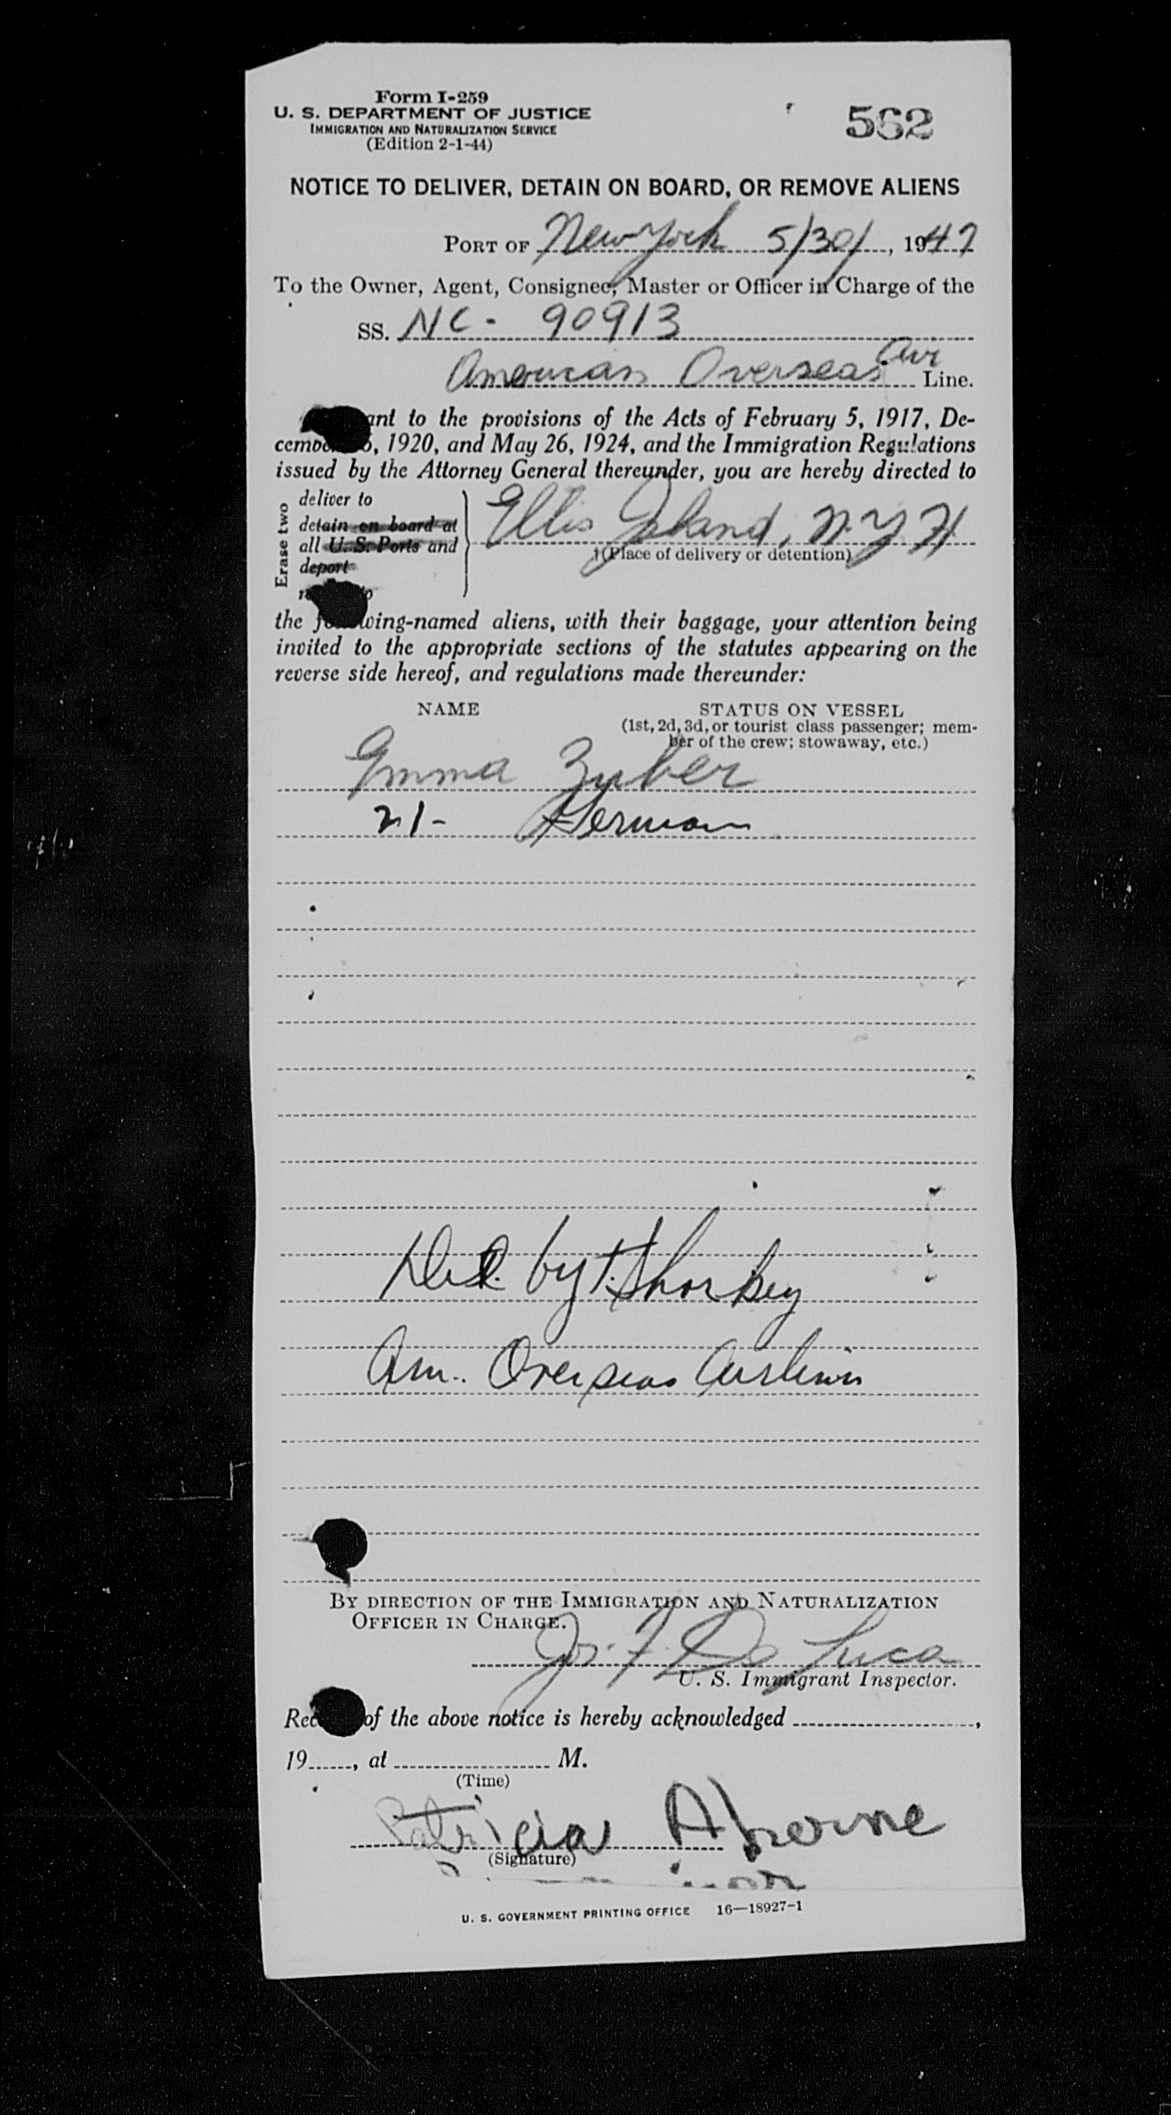 Form I-259
U. S. DEPARTMENT OF JUSTICE
IMMIGRATION AND NATURALIZATION SERVICE
(Edition 2-1-44)
562
NOTICE TO DELIVER, DETAIN ON BOARD, OR REMOVE ALIENS
PORT OF New York 5/30/, 1947
To the Owner, Agent, Consignee, Master or Officer in Charge of the
SS. NC- 90913
American Overseas Air Line.
ant to the provisions of the Acts of February 5, 1917, De-
cembe 6, 1920, and May 26, 1924, and the Immigration Regulations
issued by the Attorney General thereunder, you are hereby directed to
Erase two
deliver to
detain on board at
all U. S. Ports and
deport
Ellis Island, N.Y.H
(Place of delivery or detention)
the following-named aliens, with their baggage, your attention being
invited to the appropriate sections of the statutes appearing on the
reverse side hereof, and regulations made thereunder:
NAME
STATUS ON VESSEL
(1st, 2d, 3d, or tourist class passenger; mem-
ber of the crew; stowaway, etc.)
Emma Zuber
21- German
Del. by T. Shorkey
Am. Overseas Airlines
BY DIRECTION OF THE IMMIGRATION AND NATURALIZATION
OFFICER IN CHARGE.
Jos. F. De Luca
U. S. Immigrant Inspector.
Rec of the above notice is hereby acknowledged ,
19 , at M.
(Time)
Patricia Aherne
(Signature)
U. S. GOVERNMENT PRINTING OFFICE 16—18927-1